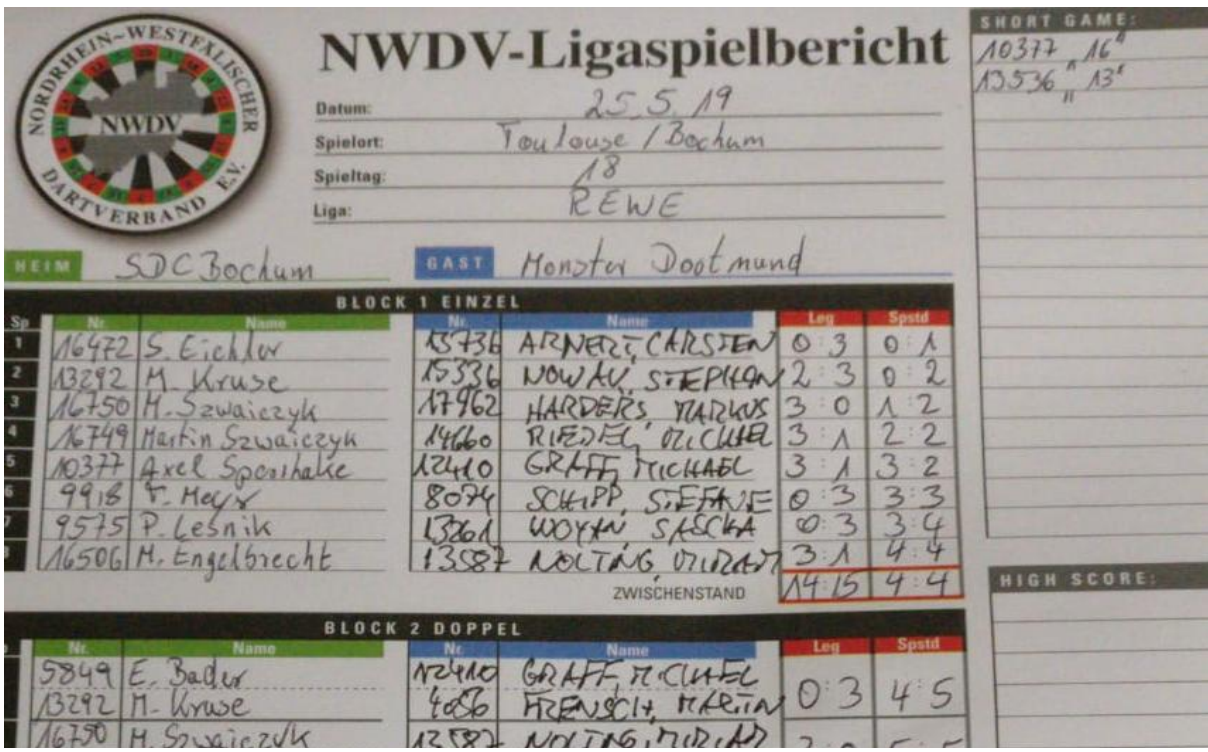 NORDRHEIN~WESTFÄLISCHER
NWDV
DARTVERBAND E.V.
NWDV-Ligaspielbericht
Datum: 25.5.19
Spielort: Toulouse / Bochum
Spieltag: 18
Liga: REWE
SHORT GAME:
10377 " 16"
13536 " 13"
HEIM SDC Bochum GAST Monster Dootmund
BLOCK 1 EINZEL
Sp Nr. Name Nr. Name Leg Spstd
1 16472 S. Eichler 15736 ARNERT, CARSTEN 0:3 0:1
2 13292 M. Kruse 15336 STEPHAN 2:3 0:2
3 16750 M. Szwaiczyk 17962 HARDERS, MARKUS 3:0 1:2
4 16749 Martin Szwaiczyk 14660 RIEDEL, MICHAEL 3:1 2:2
5 10377 Axel 12410 GRAFF, MICHAEL 3:1 3:2
6 9918 8074 SCHIPP, STEFANIE 0:3 3:3
9575 P. Leśnik 13261 WOYAN SASCHA 0:3 3:4
16506 M. Engelbrecht 13587 NOLTING, MIRIAM 3:1 4:4
ZWISCHENSTAND 14:15 4:4
HIGH SCORE:
BLOCK 2 DOPPEL
Nr. Name Nr. Name Leg Spstd
5849 E. Bader 12410 GRAFF, MICHAEL 0:3 4:5
13292 M. Kruse 4056 FRENSCH, MARTIN
16750 M. Szwaiczyk 13587 NOLTING, MIRIAM